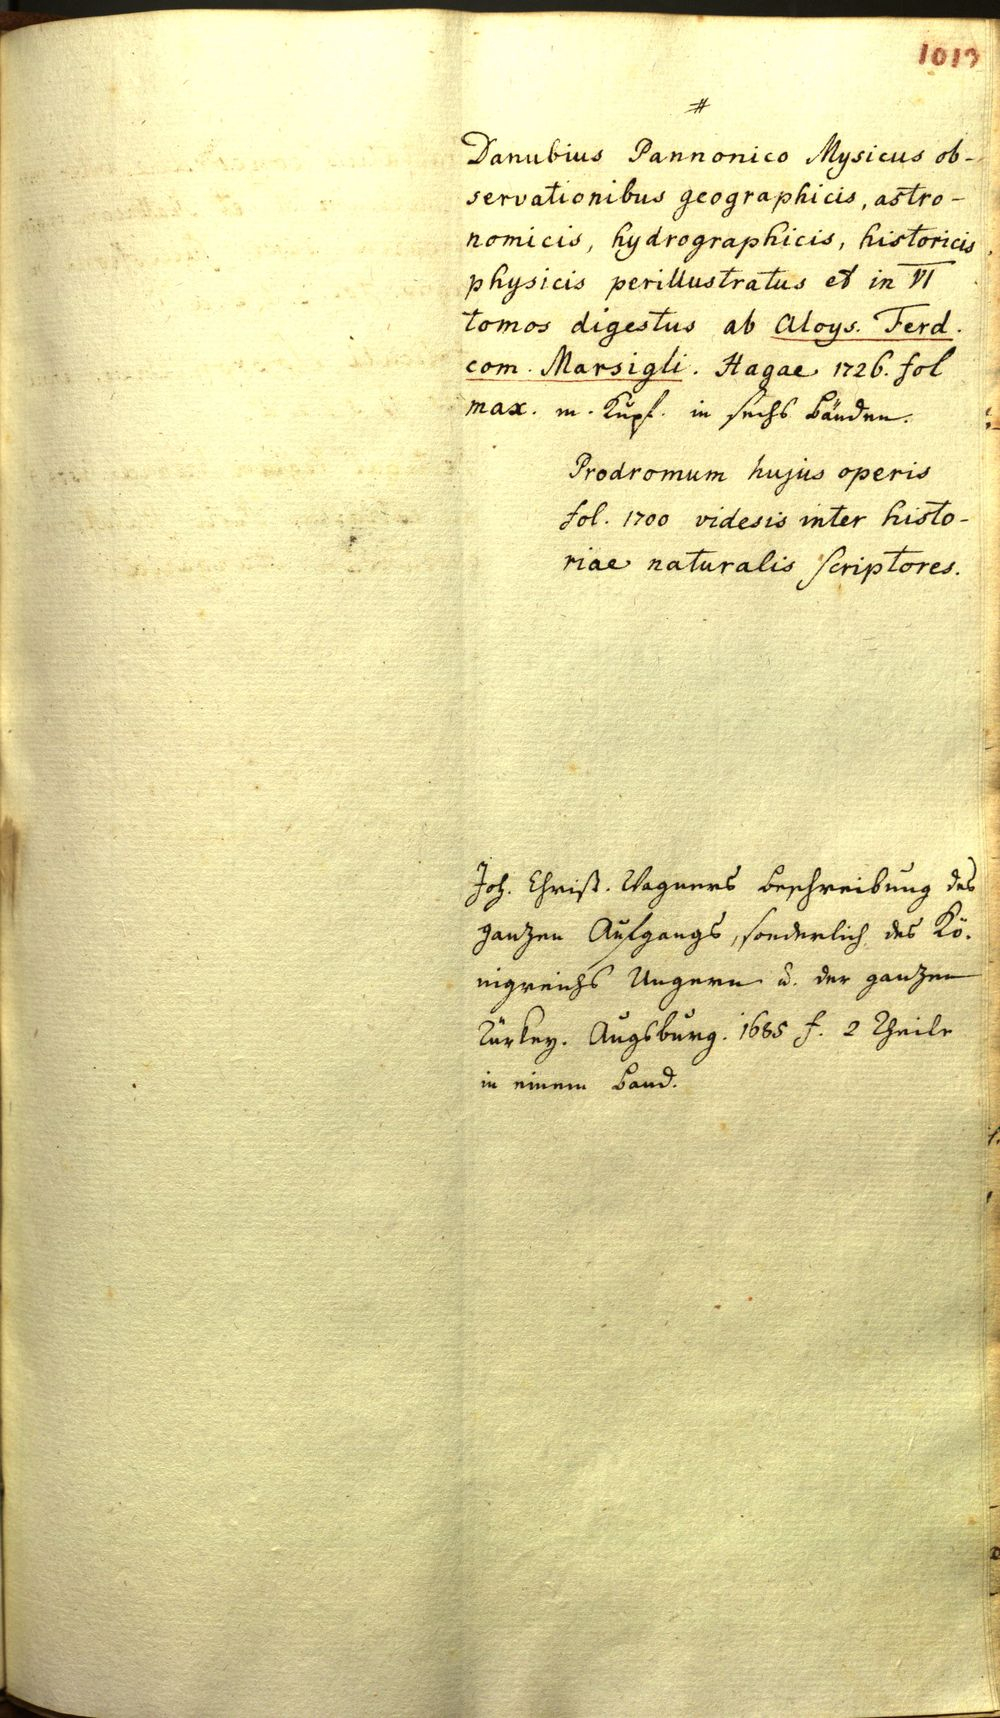 1013
#
Danubius Pannonico Mysicus ob-
servationibus geographicis, astro-
nomicis, hydrographicis, historicis
physicis perillustratus et in VI
tomos digestus ab Aloys. Ferd.
com. Marsigli. Hagae 1726. fol
max. m. Kupf. in sechs Bänden.
Prodromum hujus operis
fol. 1700 videsis inter histo-
riae naturalis scriptores.
Joh. Christ. Wagners Beschreibung des
ganzen Aufgangs, sonderlich des Kö-
nigreichs Ungern u. der ganzen
Türkey. Augsburg. 1685 f. 2 Theile
in einem Band.